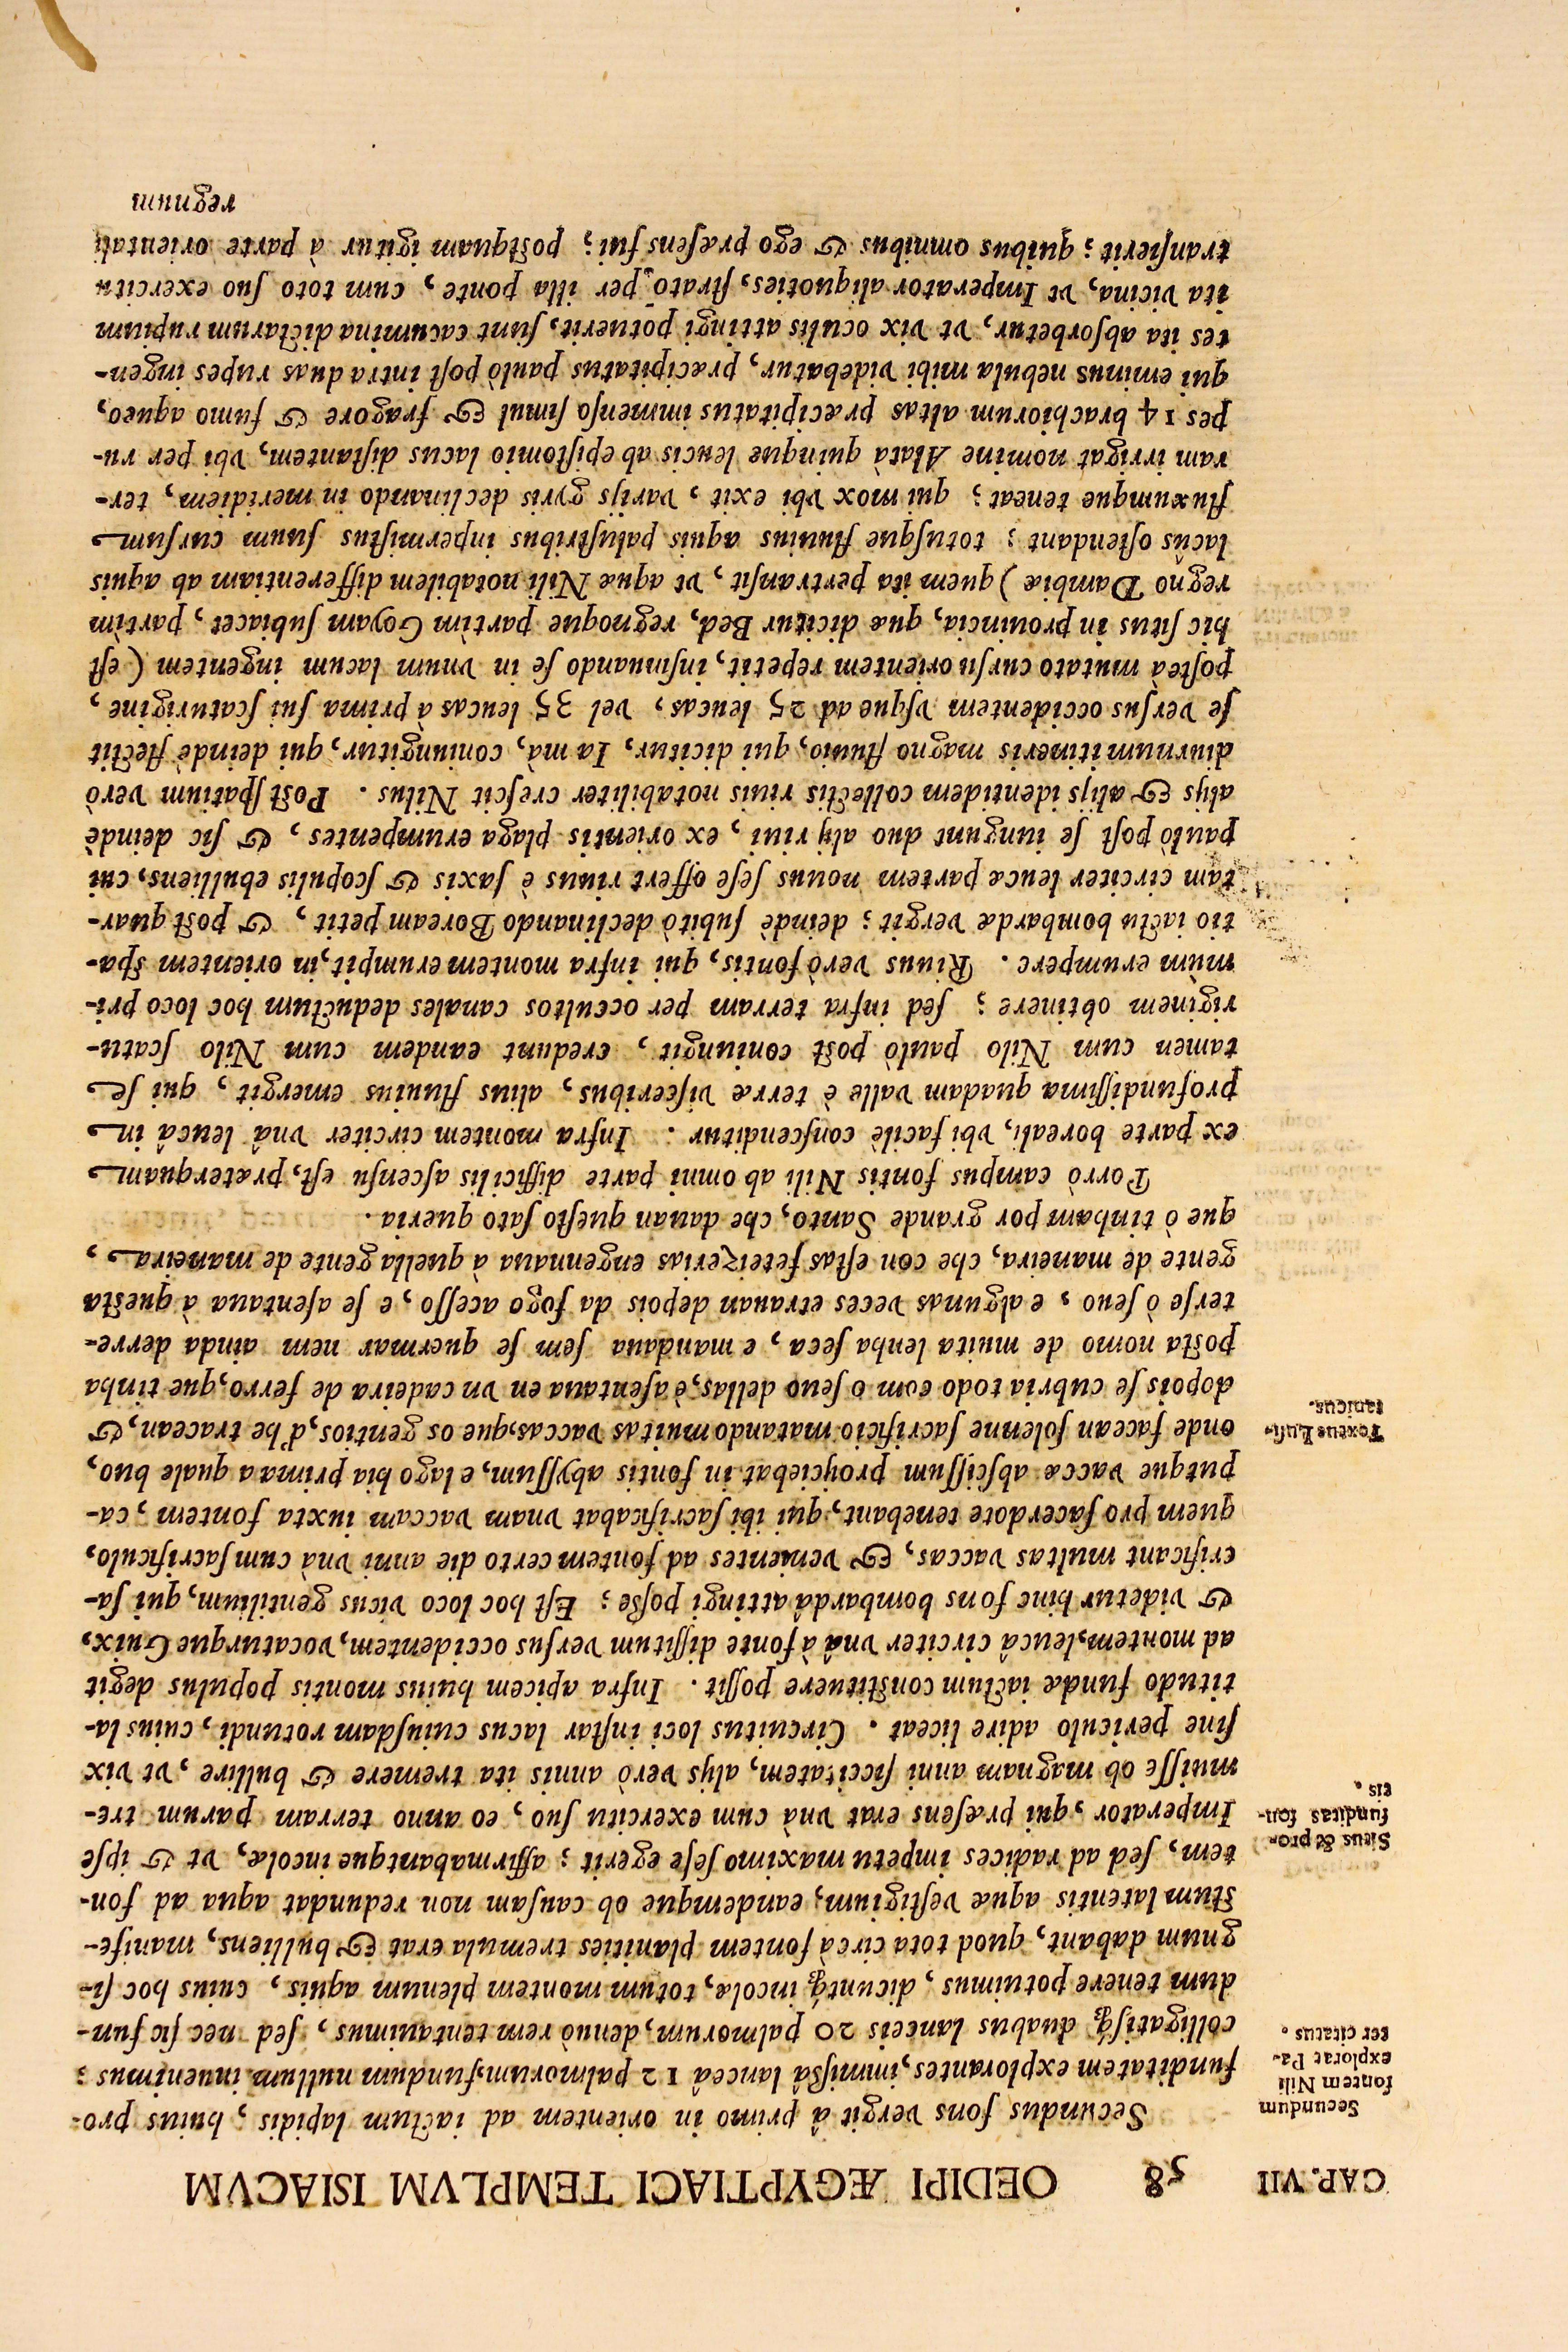 CAP. VII 58 OEDIPI ÆGYPTIACI TEMPLVM ISIACVM
Secundum
fontem Nili
explorat Pa-
ter citatus.
Secundus fons vergit â primo in orientem ad iactum lapidis, huius pro-
funditatem explorantes, immiſsâ lanceâ 12 palmorum, fundum nullum inuenimus;
colligatiſq; duabus lanceis 20 palmorum, denuò rem tentauimus, ſed nec ſic fun-
dum tenere potuimus, dicuntq; incolæ, totum montem plenum aquis, cuius hoc ſi-
gnum dabant, quod tota circà fontem planities tremula erat & bulliens, manife-
ſtum latentis aquæ veſtigium; eandemque ob cauſam non redundat aqua ad fon-
tem, ſed ad radices impetu maximo ſeſe egerit; affirmabantque incolæ, vt & ipſe
Situs & pro-
funditas fon-
tis.
Imperator, qui præſens erat vnà cum exercitu ſuo, eo anno terram parum tre-
muiſſe ob magnam anni ſiccitatem, alijs verò annis ita tremere & bullire, vt vix
ſine periculo adire liceat. Circuitus loci inſtar lacus cuiuſdam rotundi, cuius la-
titudo fundæ iactum conſtituere poſſit. Infra apicem huius montis populus degit
ad montem, leucâ circiter vnâ à fonte diſſitum verſus occidentem, vocaturque Guix,
& videtur hinc fons bombardâ attingi poſse; Eſt hoc loco vicus gentilium, qui ſa-
crificant multas vaccas, & venientes ad fontem certo die anni vnà cum ſacrificulo,
quem pro ſacerdote tenebant, qui ibi ſacrificabat vnam vaccam iuxta fontem, ca-
putque vaccæ abſciſſum proijciebat in fontis abyſſum, e lago hia prima a quale huo,
Textus Luſi-
tanicus.
onde facean ſolenne ſacrificio matando muitas vaccas, que os gentios, d'he tracean, &
dopois ſe cubria todo com o ſeuo dellas, è aſentaua en vn cadeira de ferro, que tinha
poſta nomo de muita lenha ſeca, e mandaua ſem ſe quermar nem ainda derre-
terſe ò ſeuo, e algunas veces etrauan depois da fogo aceſſo, e ſe aſentaua à queſta
gente de maneira, che con eſtas feteizerias engennaua à quella gente de maneira,
que ò tinham por grande Santo, che dauan queſto ſato queria.
Porrò campus fontis Nili ab omni parte difficilis aſcenſu eſt, præterquam
ex parte boreali, vbi facilè conſcenditur. Infra montem circiter vnâ leucâ in
profundiſſima quadam valle è terræ viſceribus, alius fluuius emergit, qui ſe
tamen cum Nilo paulò poſt coniungit, credunt eandem cum Nilo ſcatu-
riginem obtinere; ſed infra terram per occultos canales deductum hoc loco pri-
mùm erumpere. Riuus verò fontis, qui infra montem erumpit, in orientem ſpa-
tio iactu bombardæ vergit; deindè ſubitò declinando Boream petit, & poſt quar-
tam circiter leucæ partem nouus ſeſe offert riuus è ſaxis & ſcopulis ebulliens, cui
paulò poſt ſe iungunt duo alij riui, ex orientis plaga erumpentes, & ſic deindè
alijs & alijs identidem collectis riuis notabiliter creſcit Nilus. Poſt ſpatium verò
diurnum itineris magno fluuio, qui dicitur, Ia mà, coniungitur, qui deindè flectit
ſe verſus occidentem vſque ad 25 leucas, vel 35 leucas à prima ſui ſcaturigine,
poſteà mutato curſu orientem repetit, inſinuando ſe in vnum lacum ingentem (eſt
hic ſitus in prouincia, quæ dicitur Bed, regnoque partìm Goyam ſubiacet, partìm
regno Dambiæ) quem ita pertranſit, vt aquæ Nili notabilem differentiam ab aquis
lacûs oſtendant; totuſque fluuius aquis paluſtribus inpermiſtus ſuum curſum
fluxumque teneat; qui mox vbi exit, varijs gyris declinando in meridiem, ter-
ram irrigat nomine Alatà quinque leucis ab epiſtomio lacus diſtantem, vbi per ru-
pes 14 brachiorum altas præcipitatus immenſo ſimul & fragore & fumo aqueo,
qui eminus nebula mihi videbatur, præcipitatus paulò poſt intra duas rupes ingen-
tes ita abſorbetur, vt vix oculis attingi potuerit, ſunt cacumina dictarum rupium
ita vicina, vt Imperator aliquoties, ſtrato per illa ponte, cum toto ſuo exercitu
tranſierit; quibus omnibus & ego præſens fui; poſtquam igitur à parte orientali
regnum